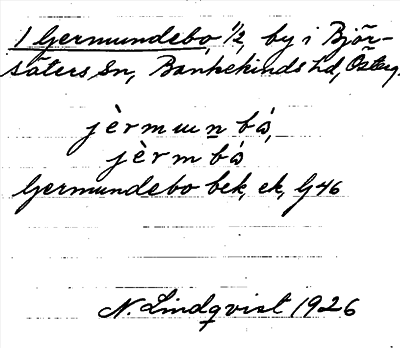 1 Germundebo, 1/2, by i Björ-
säters sn, Bankekinds hd, Österg.
jèrmunbó,
jèrmbó
Germundebo bek, ek, G46
N. Lindqvist 1926